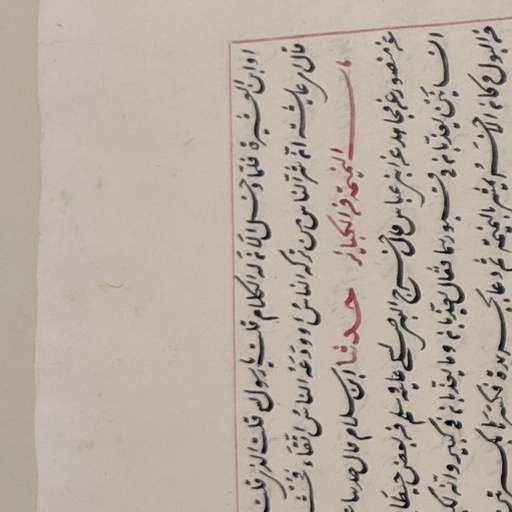 او ابن العشيرة فلمّا دخل الان له الكلام قلت يا رسول الله قلت الذي قلت
قال اي عايشة انّ شرّ الناس من تركه الناس او ودعه الناس اتّقاء فحشـ
باب النميمة من الكبائر حدثنا ابن سلام قال حدثنا
عن منصور عن مجاهد عن ابن عباس قال خرج النبي صلى الله عليه وسلم من بعض حيطا
انسانين يعذّبان في قبورهما فقال يعذّبان وما يعذّبان في كبير وانّه لكبـ
من البول وكان الاخر يمشي بالنميمة ثم دعا بجريدة فكسرها بكسرتين